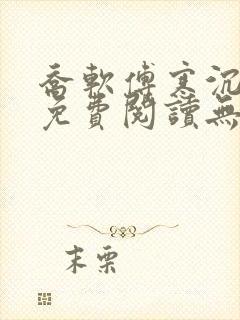 喬軟傅寒沉
免費閱讀無
末栗